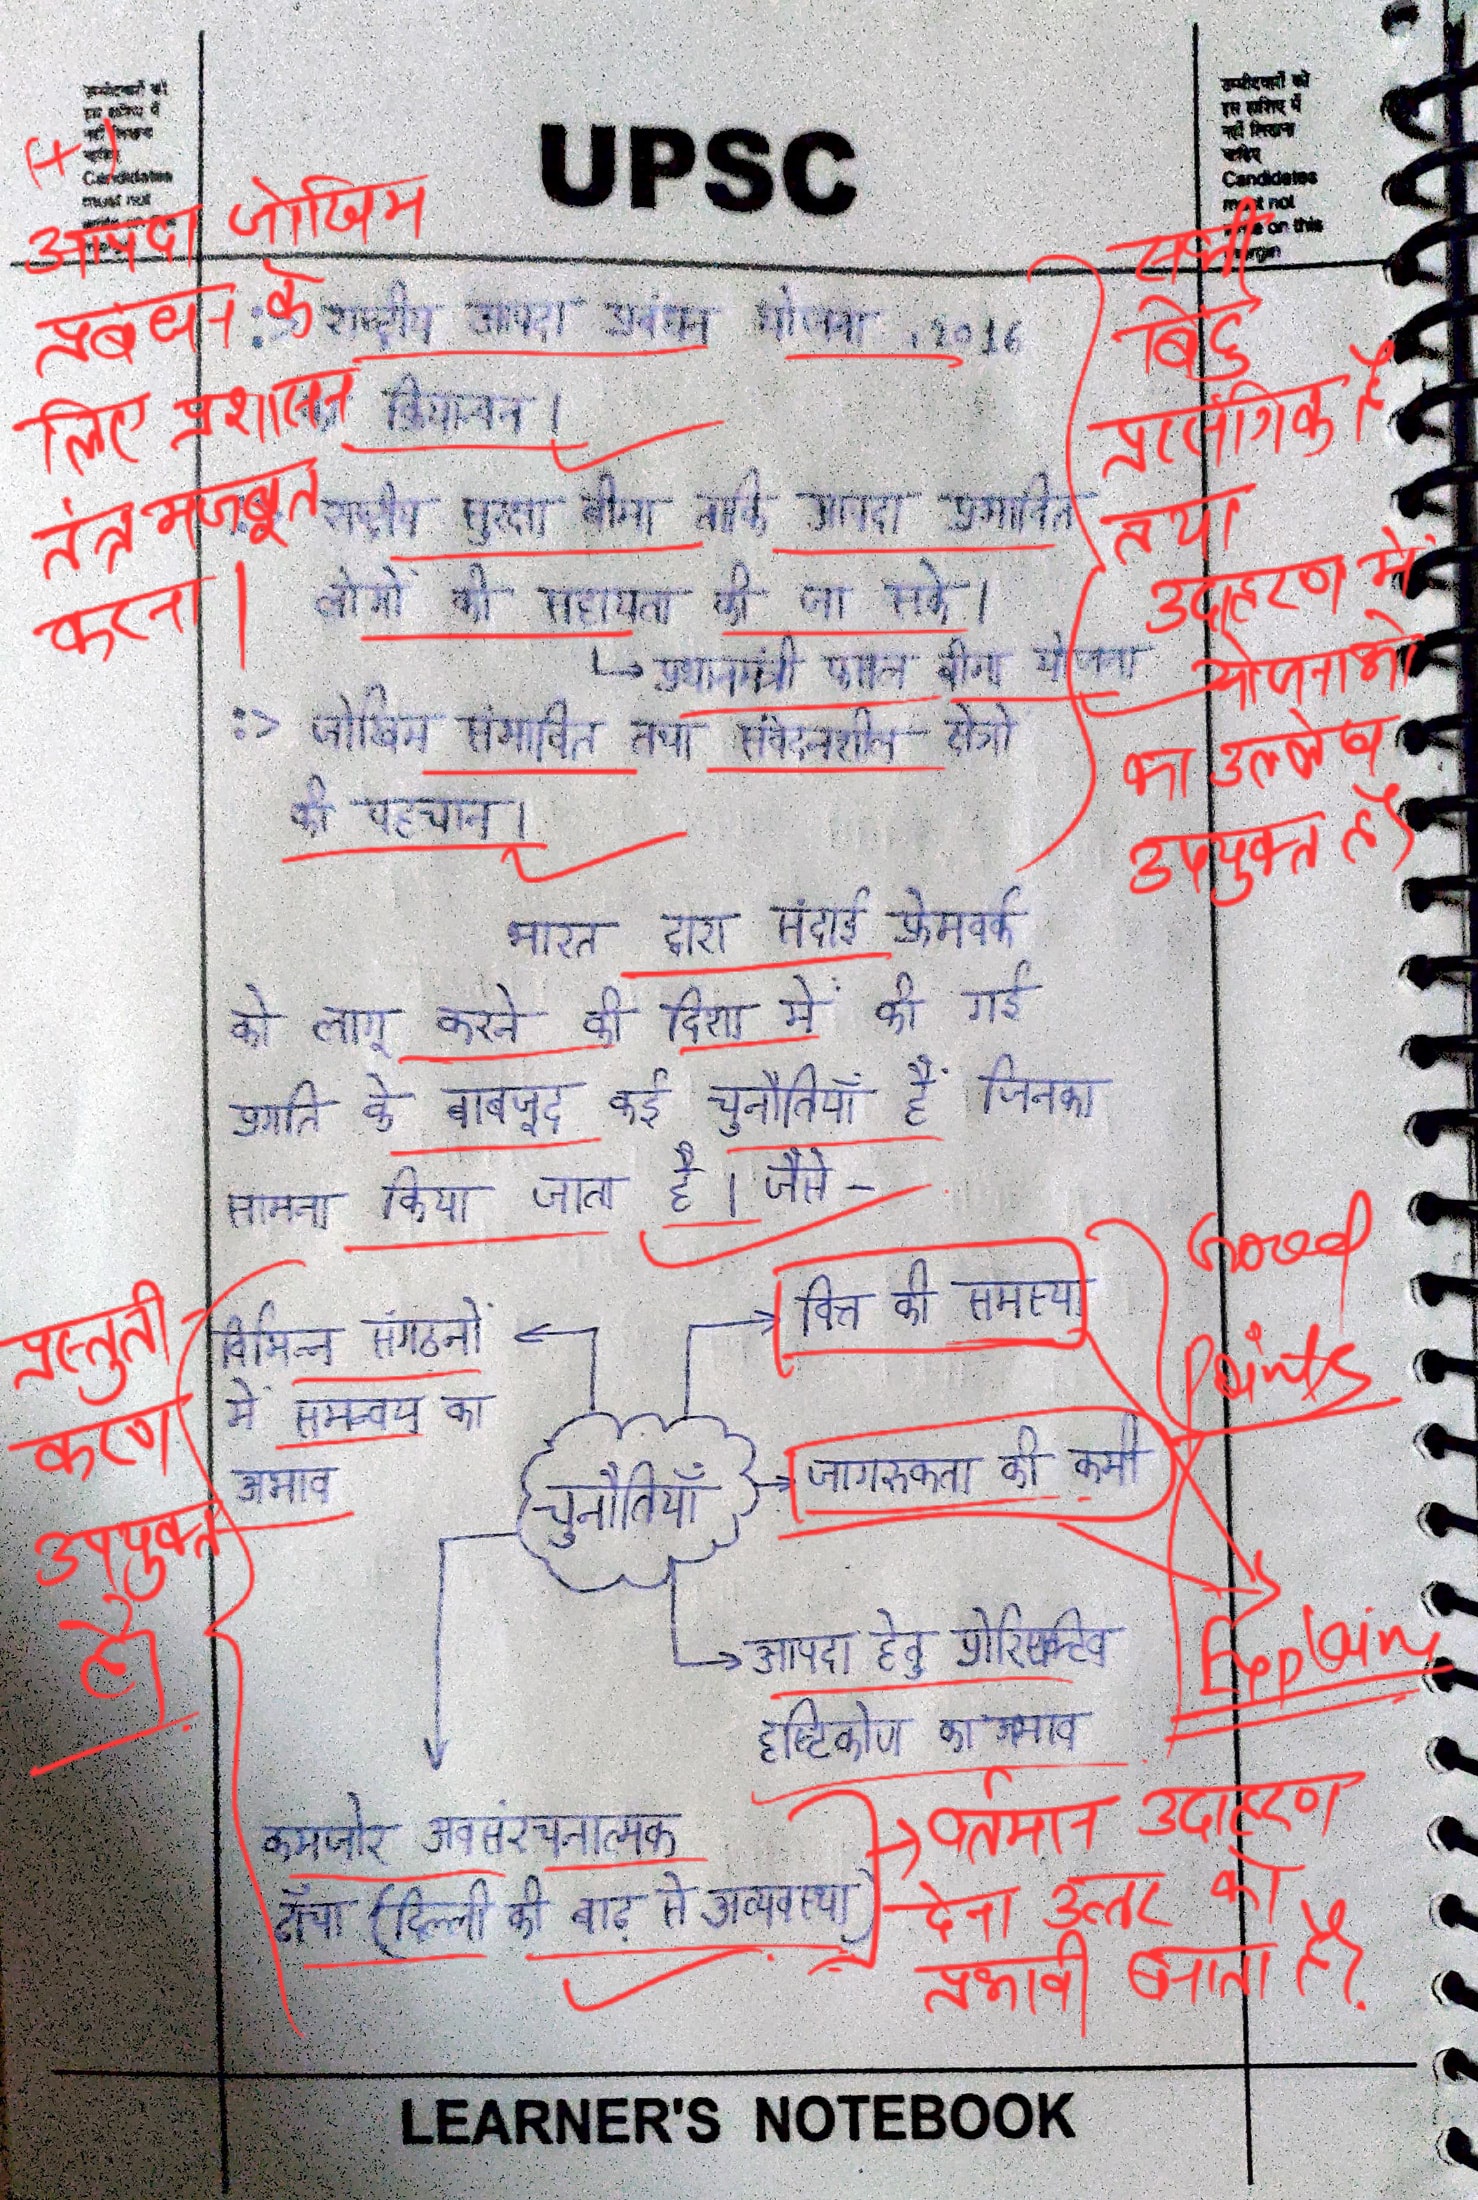 उम्मीदवारों को
इस हाशिए में
नहीं लिखना
चाहिए
Candidates
must not
उम्मीदवारों को
इस हाशिए में
नहीं लिखना
चाहिए
Candidates
must not
write on this
margin
UPSC
(+)
आपदा जोखिम
प्रबंधन के
लिए प्रशासन
तंत्र मजबूत
करना।
सभी
बिंदु
प्रासंगिक है
तथा
उदाहरण में
योजनाओ
का उल्लेख
उपयुक्त है
:> राष्ट्रीय आपदा प्रबंधन योजना, 2016
का क्रियान्वन।
राष्ट्रीय सुरक्षा बीमा ताकि आपदा प्रभावित
लोगों की सहायता की जा सके।
↳ प्रधानमंत्री फसल बीमा योजना
:> जोखिम संभावित तथा संवेदनशील क्षेत्रो
की पहचान।
भारत द्वारा सेंदाई फ्रेमवर्क
को लागू करने की दिशा में की गई
प्रगति के बाबजूद कई चुनौतियाँ हैं जिनका
सामना किया जाता है। जैसे -
प्रस्तुती
करण
उपयुक्त
है।
विभिन्न संगठनों
में समन्वय का
अभाव
वित्त की समस्या
Good
Points
चुनौतियाँ
जागरुकता की कमी
Explain
आपदा हेतु प्रोएक्टिव
दृष्टिकोण का अभाव
कमजोर अवसंरचनात्मक
ढाँचा (दिल्ली की बाढ़ से अव्यवस्था)
→ वर्तमान उदाहरण
देना उत्तर को
प्रभावी बनाता है।
LEARNER'S NOTEBOOK